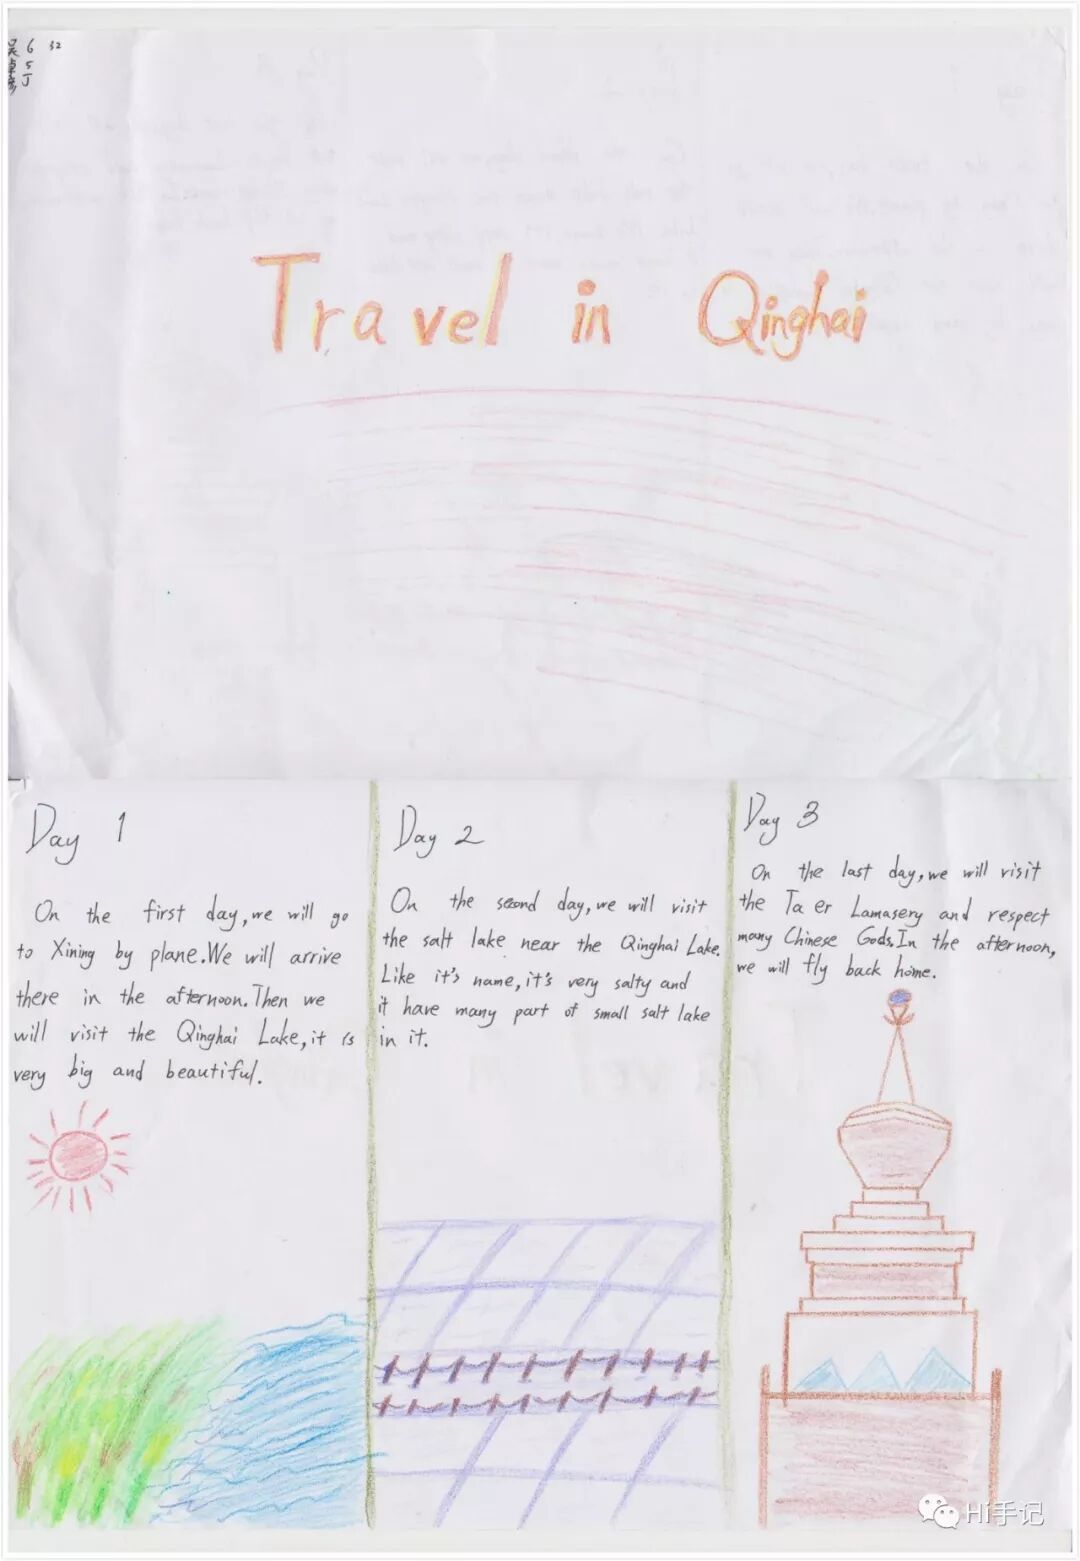 6 32
5
J
Travel in Qinghai
Day 1
On the first day,we will go
to Xining by plane.We will arrive
there in the afternoon.Then we
will visit the Qinghai Lake,it is
very big and beautiful.
Day 2
On the second day,we will visit
the salt lake near the Qinghai Lake.
Like it's name,it's very salty and
it have many part of small salt lake
in it.
Day 3
On the last day,we will visit
the Ta er Lamasery and respect
many Chinese Gods.In the afternoon,
we will fly back home.
Hi手记